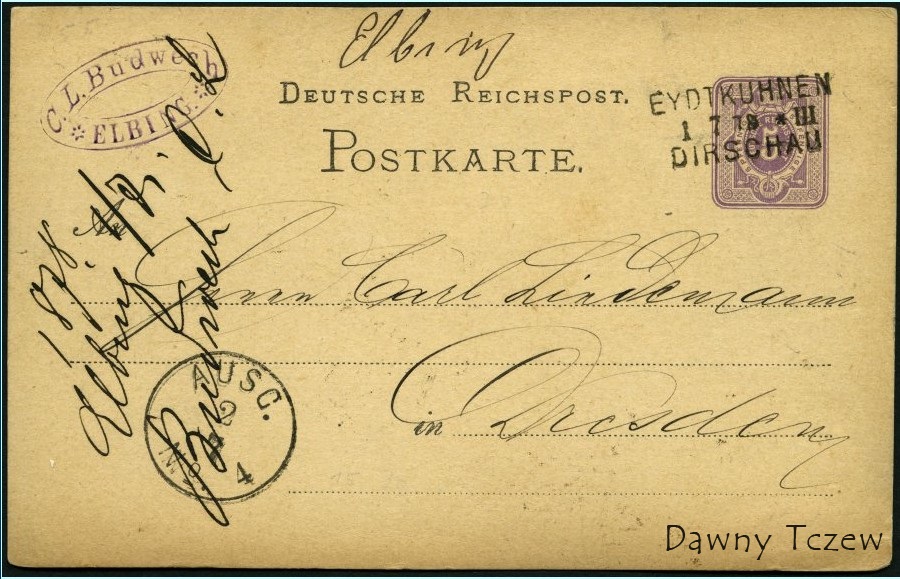 Elbing
C. L. Budwech
* ELBING. *
DEUTSCHE REICHSPOST.
POSTKARTE.
EYDTKUHNEN
1 7 78 * III
DIRSCHAU
An
Herrn Carl Liedemann
in Dresden
1878.
Elbing 1/7
Budwech
AUSG.
2
7
4
Dawny Tczew